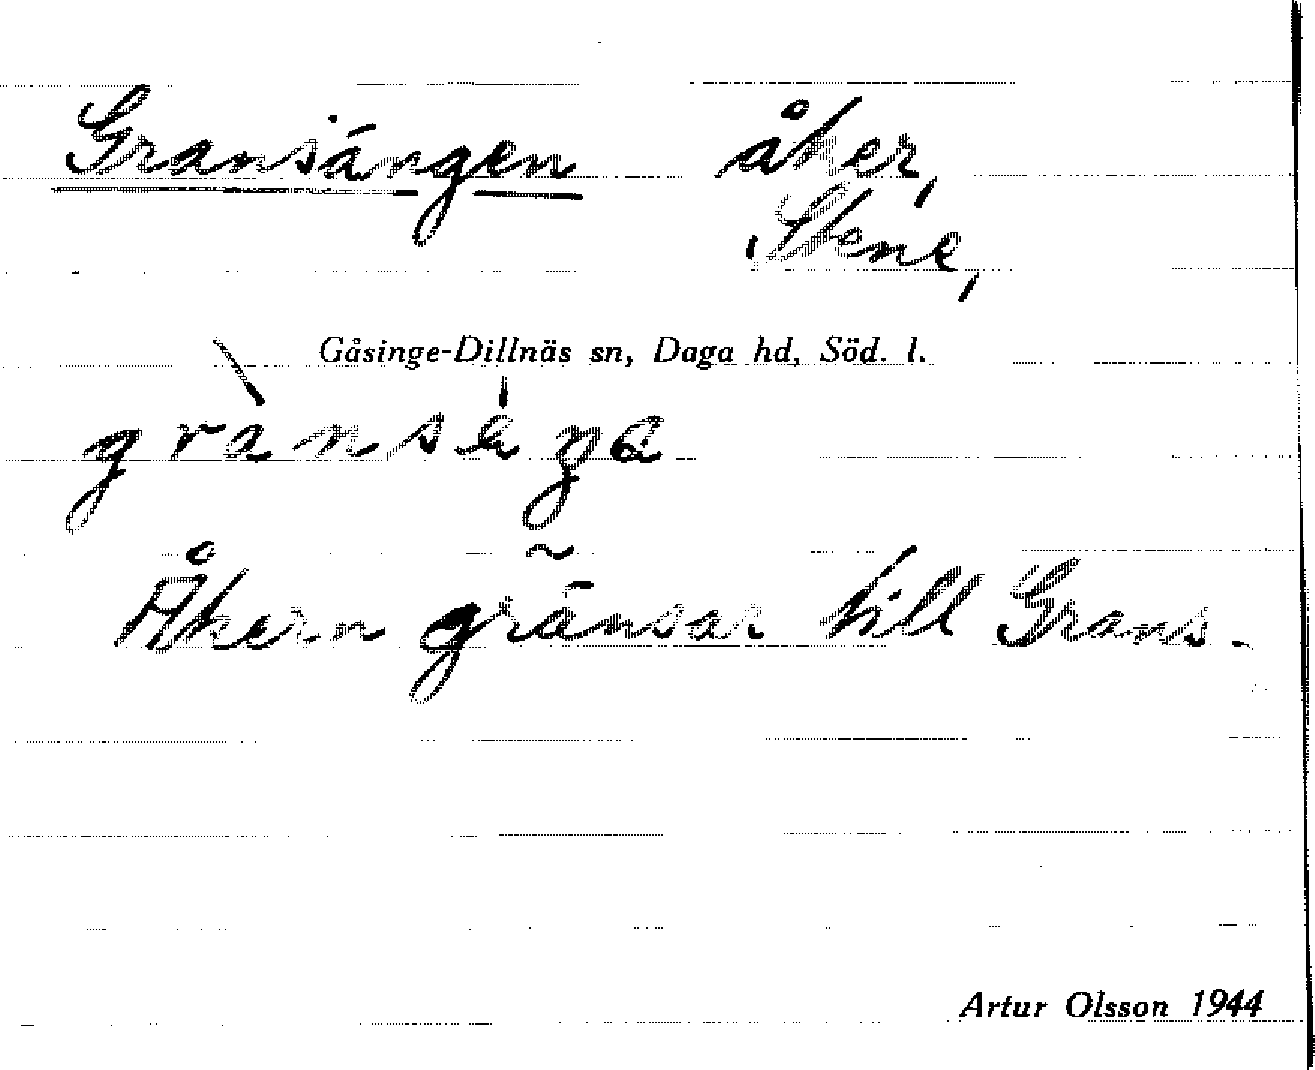 Gransängen åker,
Stene,
Gåsinge-Dillnäs sn, Daga hd, Söd. l.
grànsáŋa
Åkern gränsar till Grans.
Artur Olsson 1944